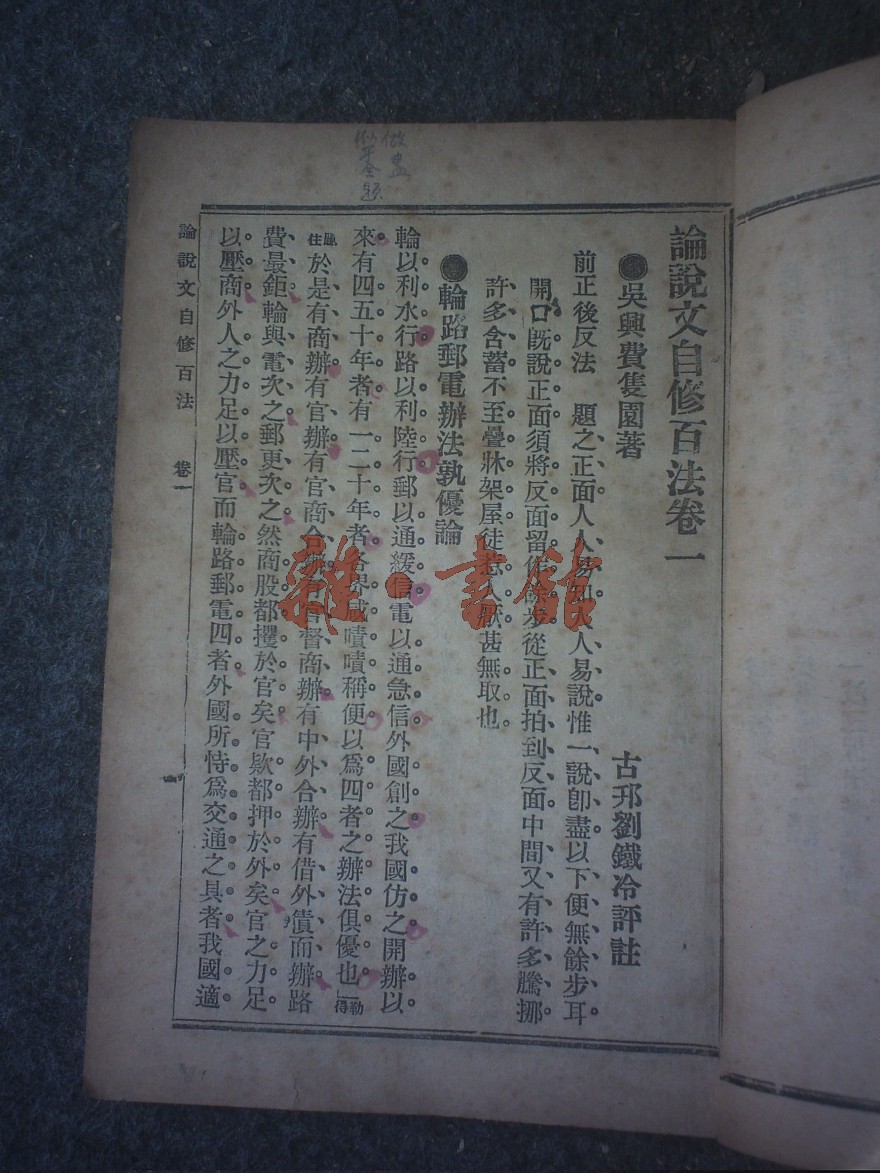 論說文自修百法卷一
吳興費隻園著
古邗劉鐵冷評註
前正後反法 題之正面人人易知人人易說惟一說卽盡以下便無餘步耳
開口旣說正面須將反面留作餘步從正面拍到反面中間又有許多騰挪
許多含蓄不至疊牀架屋徒惹人厭甚無取也
輪路郵電辦法孰優論
輪以利水行路以利陸行郵以通緩信電以通急信外國創之我國仿之開辦以
來有四五十年者有一二十年者各界咸嘖嘖稱便以爲四者之辦法俱優也一勒得
住 於是有商辦有官辦有官商合辦有官督商辦有中外合辦有借外債而辦路
費最鉅輪與電次之郵更次之然商股都攫於官矣官欵都押於外矣官之力足
以壓商外人之力足以壓官而輪路郵電四者外國所恃爲交通之具者我國適
論說文自修百法 卷一
雜·書館